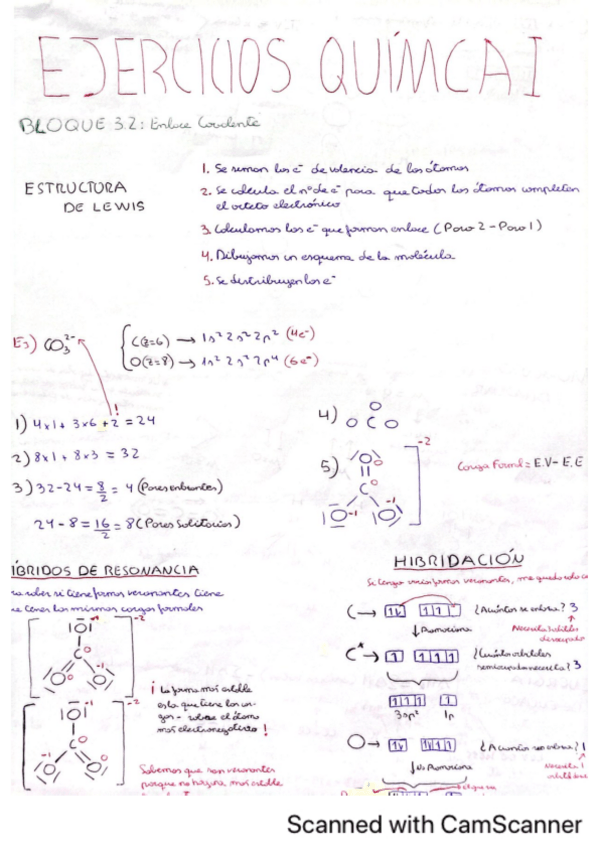 EJERCICIOS QUÍMCA I
BLOQUE 3.2: Enlace Covalente
ESTRUCTURA
DE LEWIS
1. Se suman los e⁻ de valencia de los átomos
2. Se calcula el nº de e⁻ para que todos los átomos completen
el octeto electrónico
3. Calculamos los e⁻ que forman enlace (Paso 2 - Paso 1)
4. Dibujamos un esquema de la molécula
5. Se distribuyen los e⁻
Ej) CO₃²⁻
C(Z=6) → 1s² 2s² 2p² (4e⁻)
O(Z=8) → 1s² 2s² 2p⁴ (6e⁻)
!
1) 4x1 + 3x6 + 2 = 24
2) 8x1 + 8x3 = 32
3) 32-24 = 8/2 = 4 (Pares enlazantes)
24 - 8 = 16/2 = 8 (Pares Solitarios)
4) O O C O
5) O O C O O -1 O -1 -2
Carga Formal = E.V - E.E
ÍBRIDOS DE RESONANCIA
ra saber si tiene formas resonantes tiene
ue tener las mismas cargas formales
¡ La forma más estable
es la que tiene las
sobre el átomo
más electronegativo !
Sabemos que son resonantes
porque no hay una más estable
HIBRIDACIÓN
Si tengo varias formas resonantes, me quedo solo c
C → ¿A cuántos se enlaza? 3
↓ Promociona
Necesita 3 orbitales
C* → ¿Cuántos orbitales
semiocupados necesita? 3
3sp² 1p
O → ¿A cuántos se enlaza? 1
↓ No Promociona
Necesita 1
Scanned with CamScanner